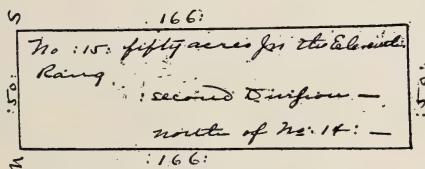 S
:166:
No :15: fifty acres In the Eleventh
Rang
:50:
: second Division —
:50:
north of No: 14: —
N
:166: